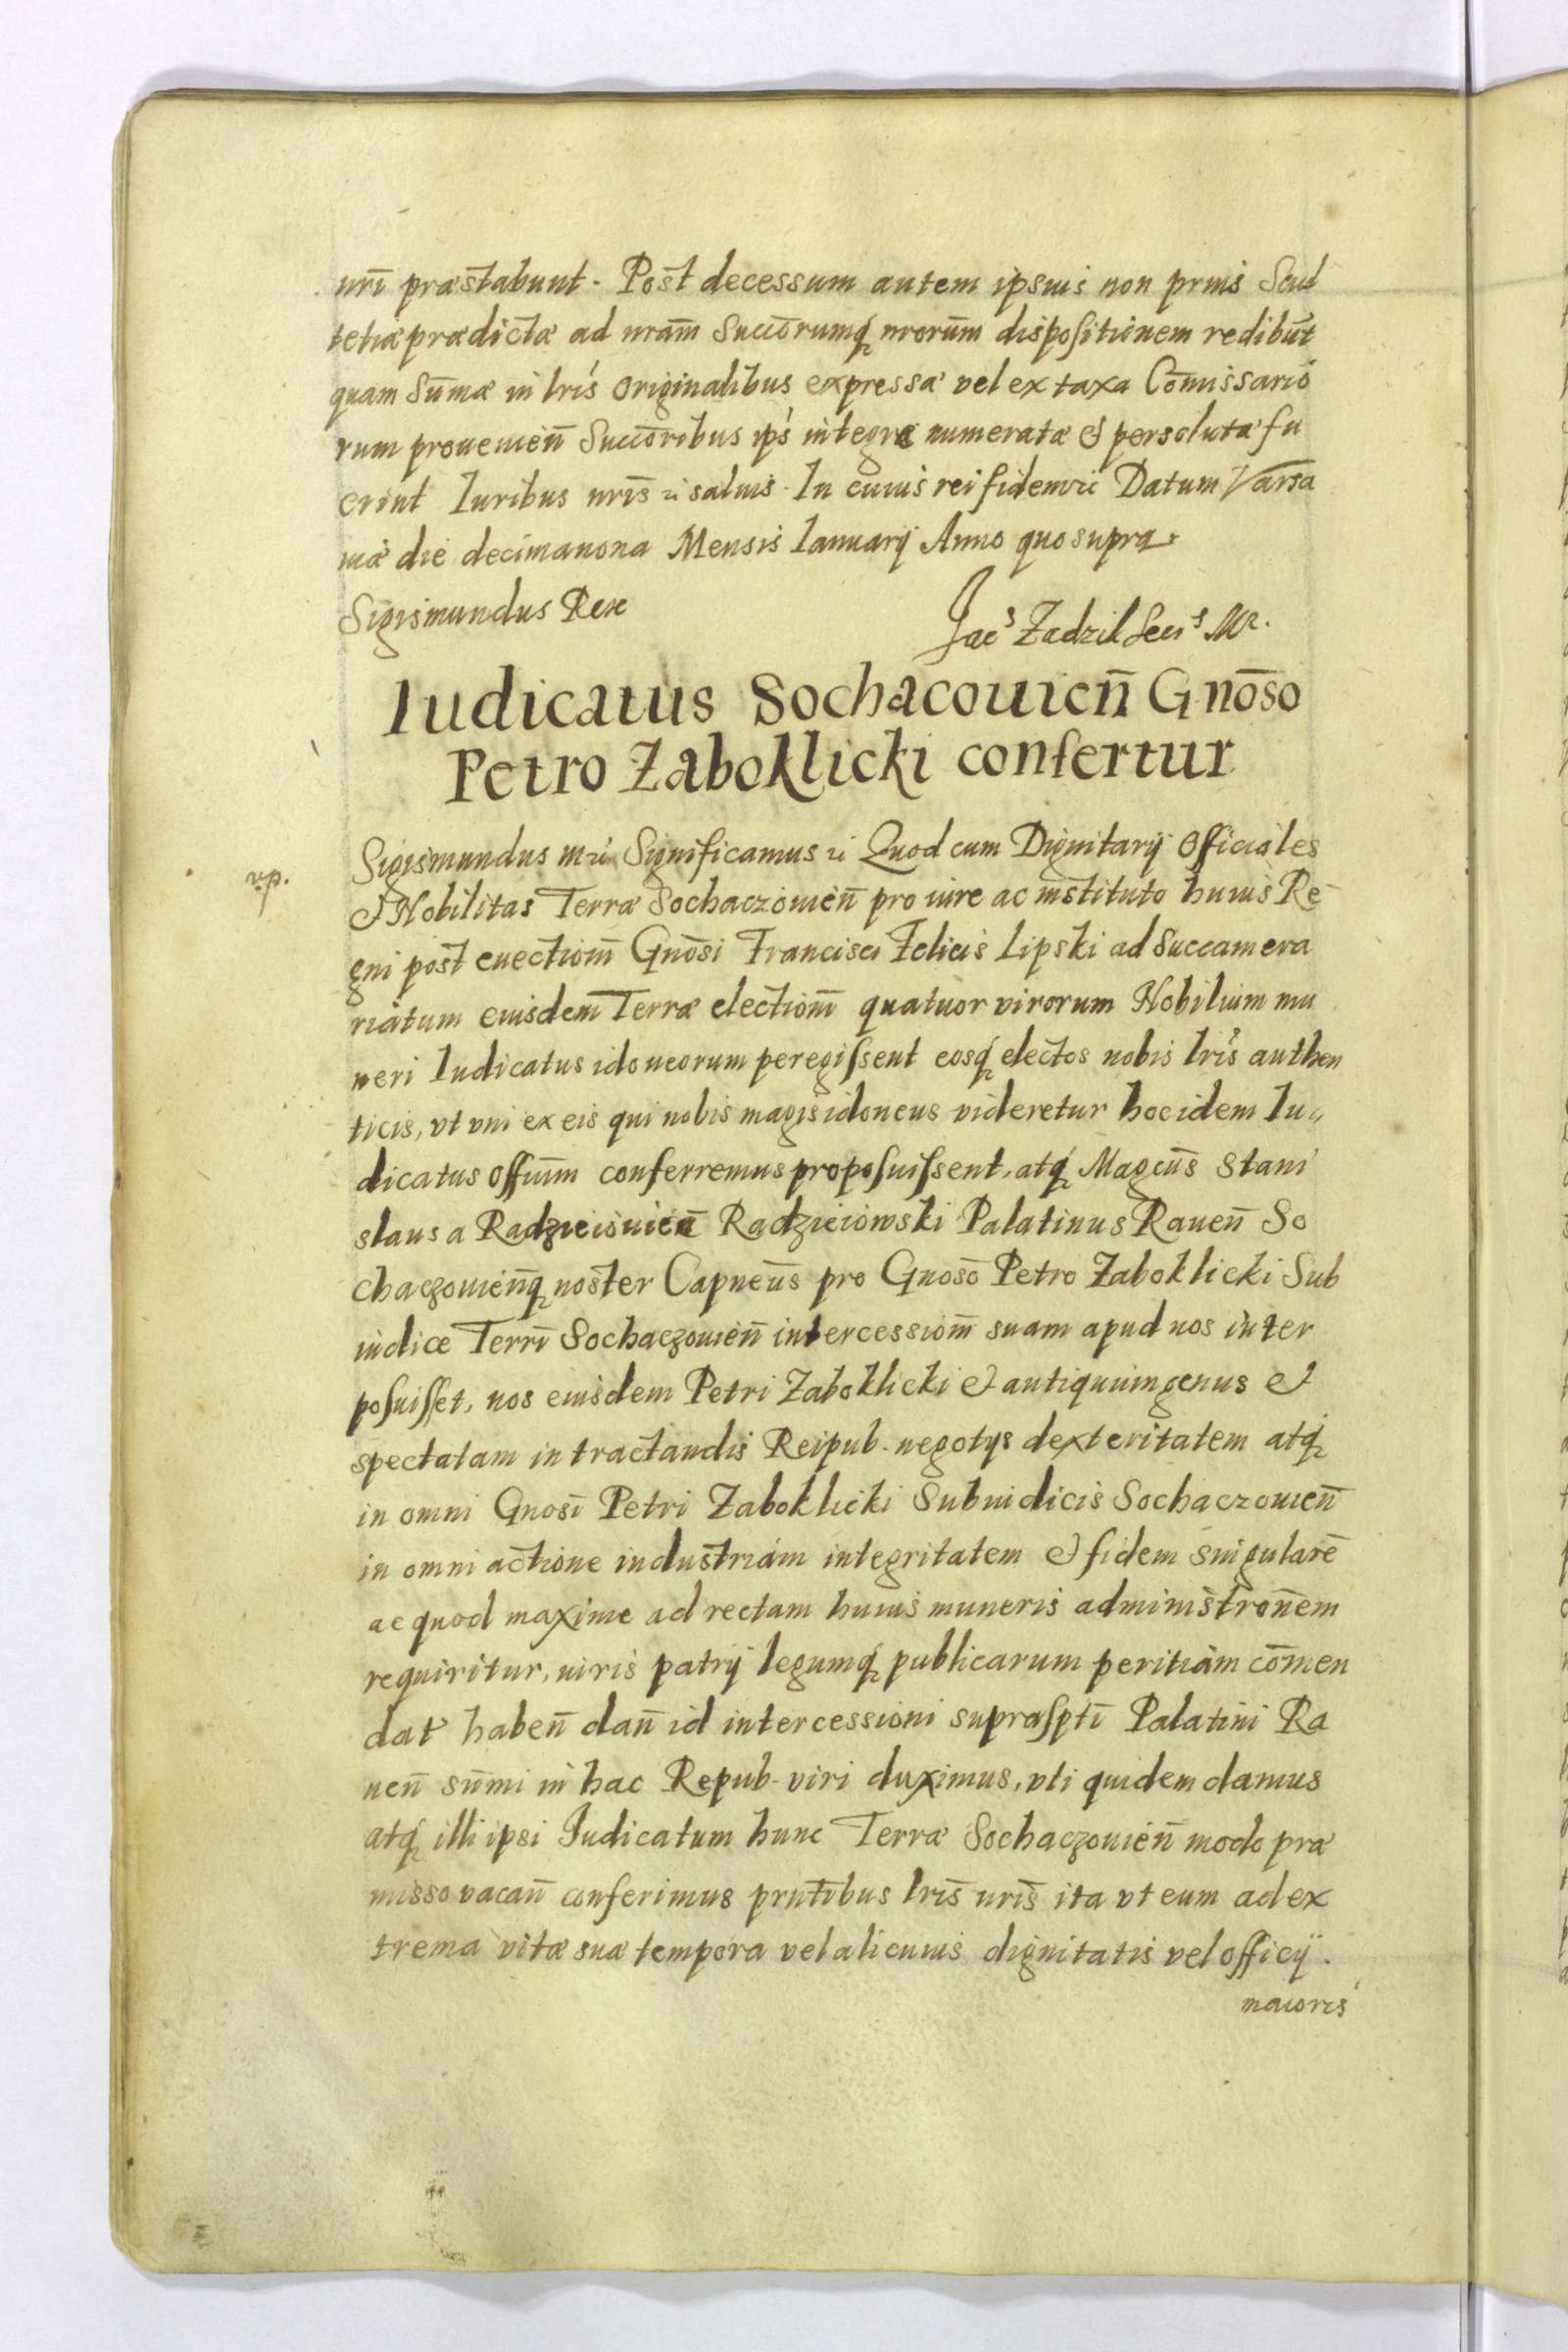 nrī præstabunt. Post decessum autem ipsius non prius Scul
tetiæ prædictæ ad nram̄ Succōrumq́ nrorum̄ dispositionem redibūt
quam Sum̄æ in lrīs originalibus expressæ vel ex taxa Com̄issario
rum prouenien̄ Succōribus ips̄ integre numeratæ et persolutæ fu
erint Iuribus nrīs ɾc̄ saluis. In cuius rei fidem ɾc̄ Datum Varsa
uiæ die decimanona Mensis Ianuarij Anno quo supra.
Sigismundus Rex
Jacˢ Zadzik Secrˢ Mr.
Iudicatus Sochacouien̄ Gnōso
Petro Zaboklicki confertur
Sigismundus ɾc̄ Significamus ɾc̄ Quod cum Dignitarij Officiales
et Nobilitas Terræ Sochaczouien̄ pro iure ac instituto huius Re
gni post euectiom̄ Gnōsi Francisci Felicis Lipski ad Succamera
riatum eiusdem Terræ electiom̄ quatuor virorum Nobilium mu
neri Iudicatus idoneorum peregissent eosq́ electos nobis lrīs authen
ticis, vt vni ex eis qui nobis magis idoneus videretur hoc idem Iu„
dicatus offiūm conferremus proposuissent, atq́ Magcūs Stani
slaus a Radzieiouicē Radzieiowski Palatinus Rauen̄ So
chaczouien̄q́ noster Capneūs pro Gnosō Petro Zaboklicki Sub
iudice Terrī Sochaczouien̄ intercessiom̄ suam apud nos inter
posuisset, nos eiusdem Petri Zaboklicki et antiquum genus et
spectatam in tractandis Reipub. negotijs dexteritatem atq́
in omni Gnosī Petri Zaboklicki Subiudicis Sochaczouien̄
in omni actione industriam integritatem et fidem singularē
ac quod maxime ad rectam huius muneris administronēm
requiritur, iuris patrij legumq́ publicarum peritiam com̄en
dat haben̄ dan̄ id intercessioni suprasptī Palatini Ra
uen̄ sum̄i in hac Repub. viri duximus, vti quidem damus
atq́ illi ipsi Iudicatum hunc Terræ Sochaczouien̄ modo præ
misso vacan̄ conferimus prntībus lrīs nrīs ita vt eum ad ex
trema vitæ suæ tempora vel alicuius dignitatis vel officij.
maioris